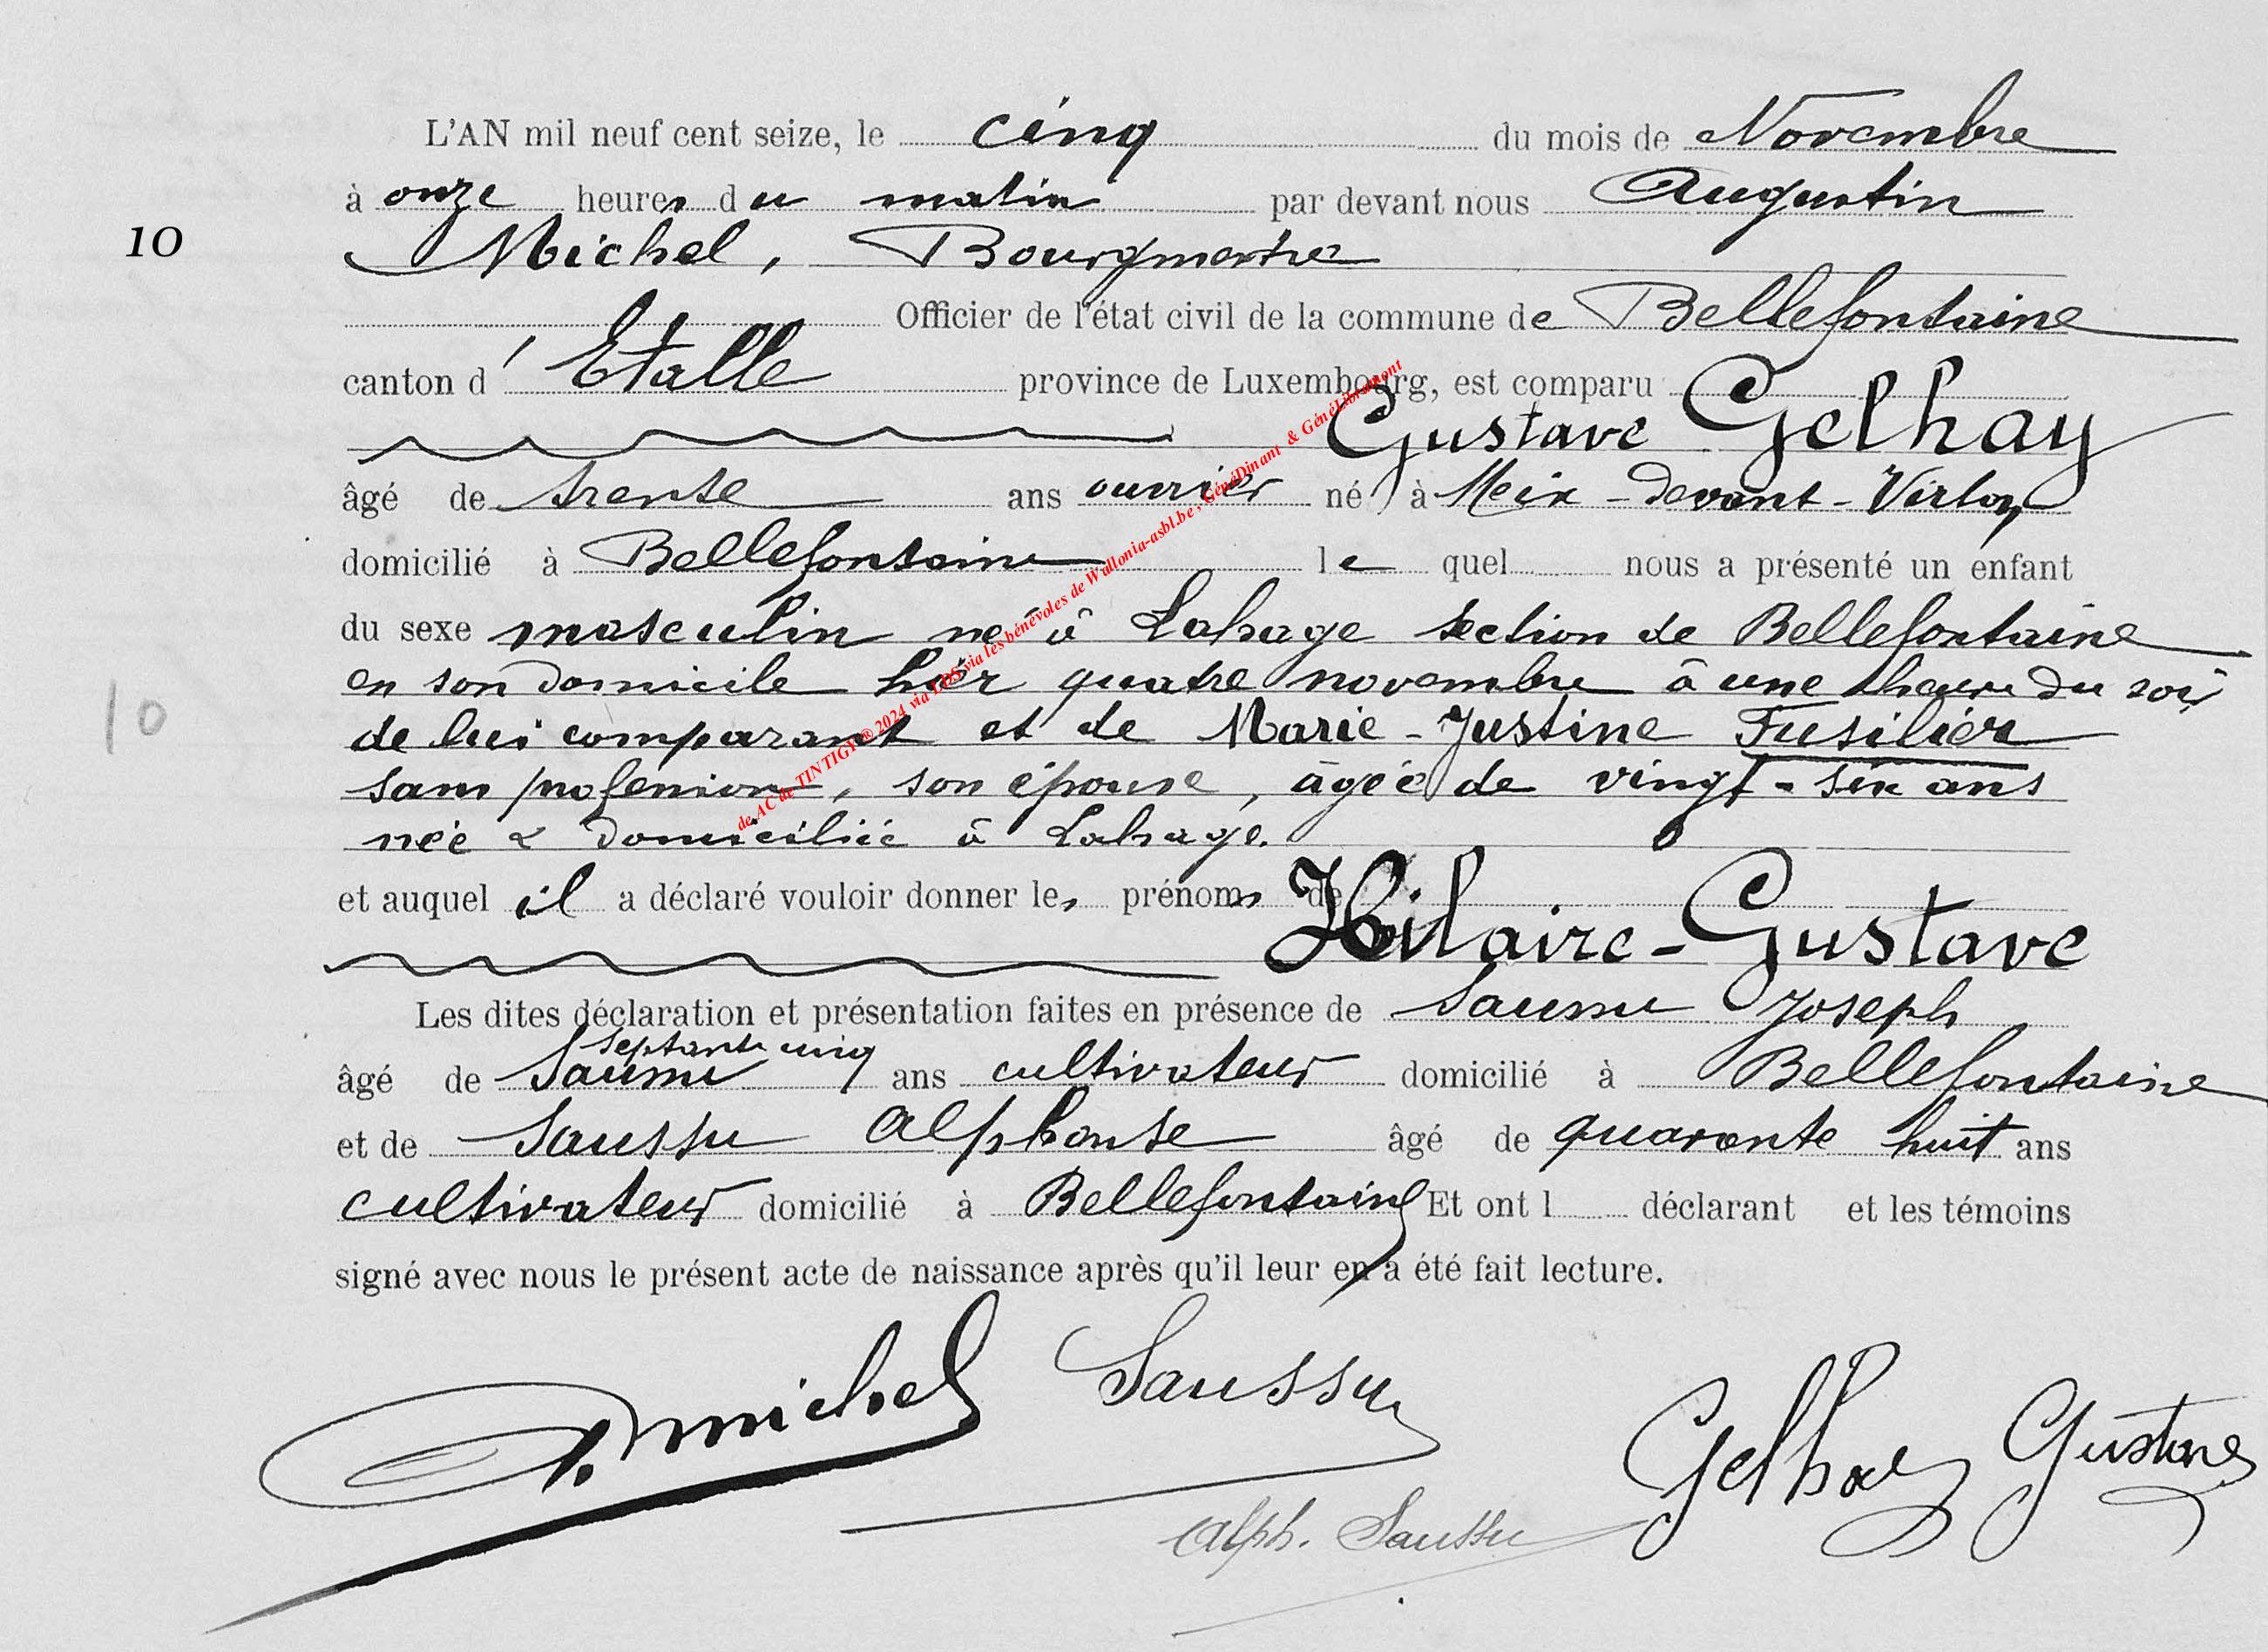 L'AN mil neuf cent seize, le cinq du mois de Novembre
à onze heures du matin par devant nous Augustin
10
Michel, Bourgmestre
Officier de l'état civil de la commune de Bellefontaine
canton d'Etalle province de Luxembourg, est comparu
Gustave Gelhay
âgé de trente ans ouvrier né à Meix-devant-Virton
domicilié à Bellefontaine le quel nous a présenté un enfant
du sexe masculin né à Lahage section de Bellefontaine
en son domicile hier quatre novembre à une heure du soir
10
de lui comparant et de Marie-Justine Fusilier
sans profession, son épouse, âgée de vingt-six ans
née & domiciliée à Lahage.
et auquel il a déclaré vouloir donner les prénoms de
Hilaire-Gustave
Les dites déclaration et présentation faites en présence de Joseph
septante cinq
âgé de ans cultivateur domicilié à Bellefontaine
et de Saussu Alphonse âgé de quarante huit ans
cultivateur domicilié à Bellefontaine Et ont l déclarant et les témoins
signé avec nous le présent acte de naissance après qu'il leur en a été fait lecture.
A. Michel Saussu Gelhay Gustave
Alph. Saussu
de AC de TINTIGY © 2024 via LDS via les bénévoles de Wallonia-asbl.be, GénéDinant & GénéLibramont